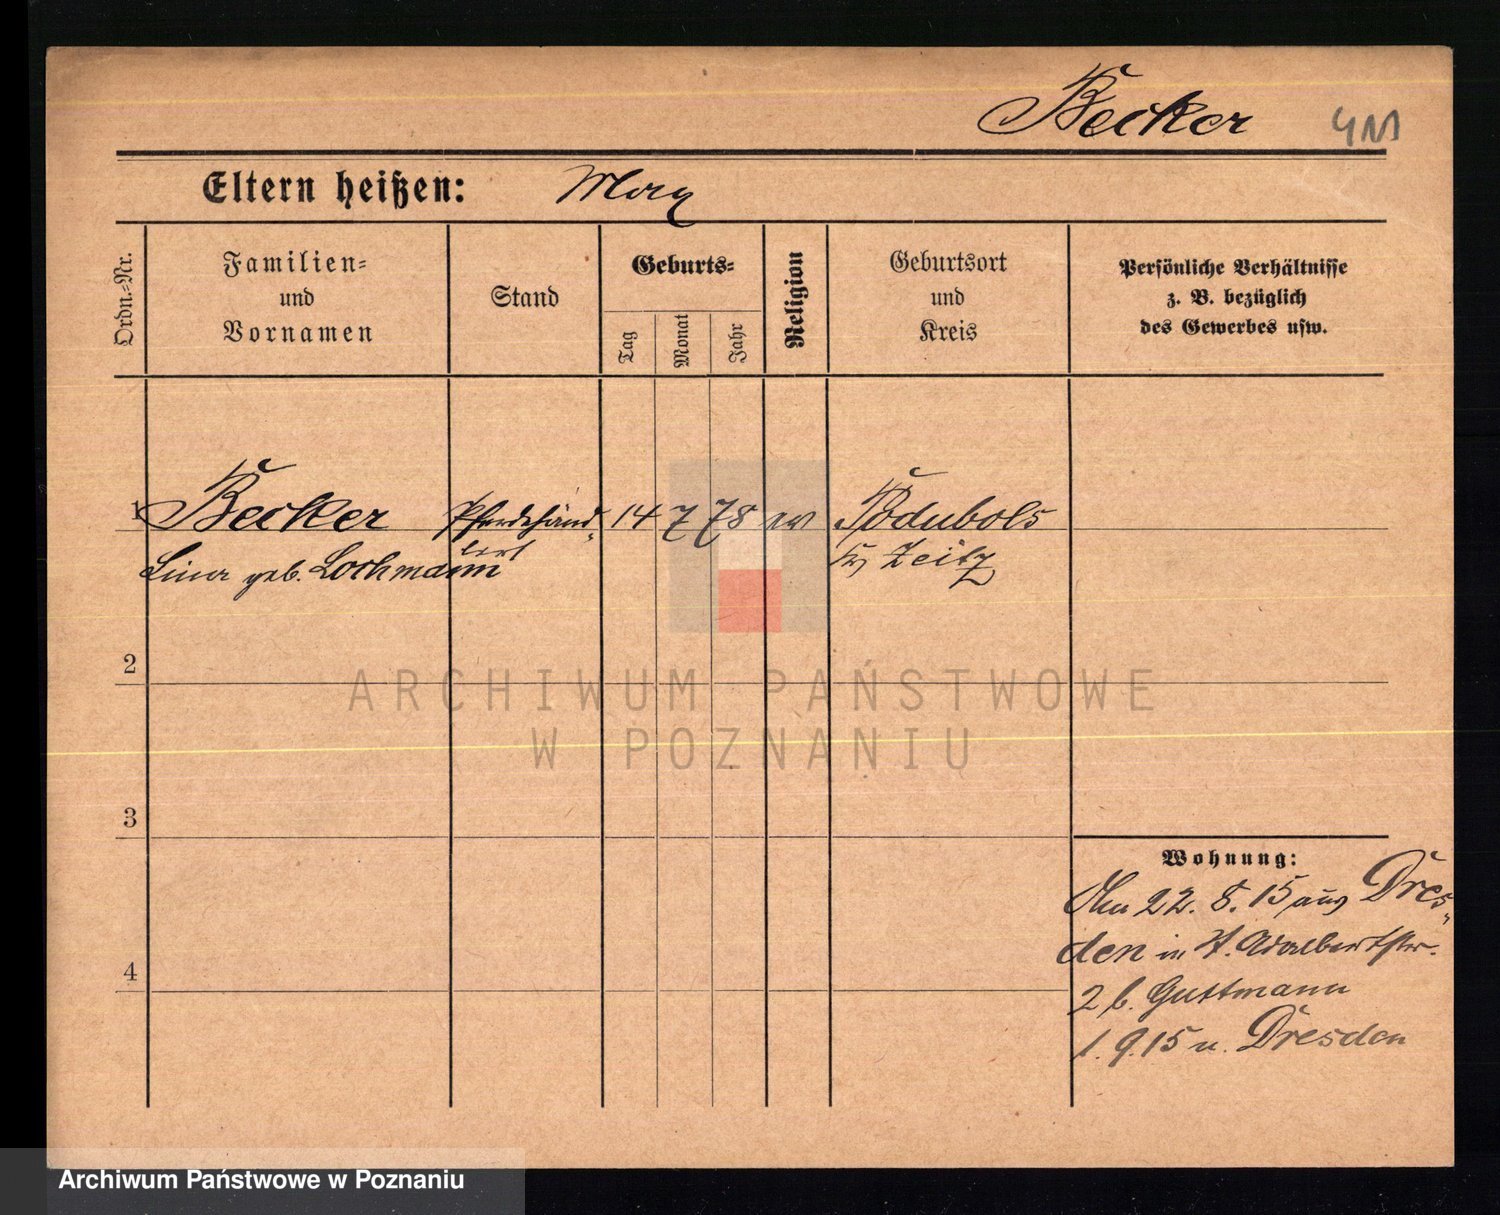 Becker
Eltern heißen: Max
Ordn.-Nr.
Familien-
und
Vornamen
Stand
Geburts-
Tag
Monat
Jahr
Religion
Geburtsort
und
Kreis
Persönliche Verhältnisse
z. B. bezüglich
des Gewerbes usw.
1 Becker Pferdehänd- 14 7 78 ev Podubols
Lina geb. Lochmann
Zeitz
2
ARCHIWUM PAŃSTWOWE
W POZNANIU
3
Wohnung:
Am 22. 8. 15 aus Dres-
den in Adalbertstr.
4
2 b. Guttmann
1. 9. 15 n. Dresden
Archiwum Państwowe w Poznaniu